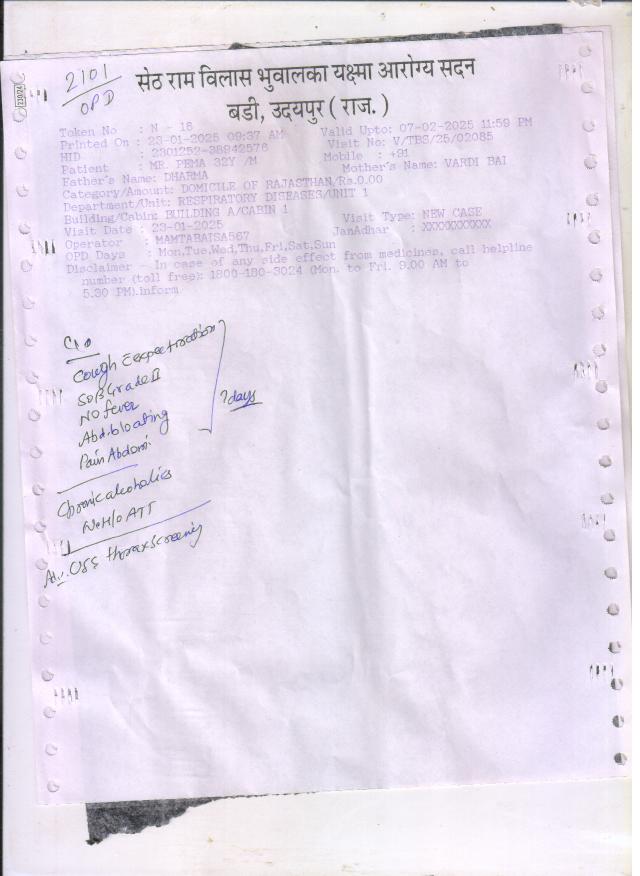 2101
OPD
सेठ राम विलास भुवालका यक्ष्मा आरोग्य सदन
बडी, उदयपुर ( राज. )
Token No : N - 16
Printed On : 23-01-2025 09:37 AM Valid Upto: 07-02-2025 11:59 PM
HID : 2301252-38942576 Visit No: V/TBS/25/02085
Patient : MR. PEMA 32Y /M Mobile : +91
Father's Name: DHARMA Mother's Name: VARDI BAI
Category/Amount: DOMICILE OF RAJASTHAN/Rs.0.00
Department/Unit: RESPIRATORY DISEASES/UNIT 1
Building/Cabin: BUILDING A/CABIN 1
Visit Date : 23-01-2025 Visit Type: NEW CASE
Operator : MAMTABAISA567 JanAdhar : XXXXXXXXXXX
OPD Days : Mon,Tue,Wed,Thu,Fri,Sat,Sun
Disclaimer - In case of any side effect from medicines, call helpline
number (toll free): 1800-180-3024 (Mon. to Fri. 9.00 AM to
5.30 PM).inform
C/o
Cough c expectoration
SOB Grade II
NO fever
Abd. bloating
Pain Abdomi.
7 days
Chronic alcoholics
No H/O ATT
Adv. USG thorax screening